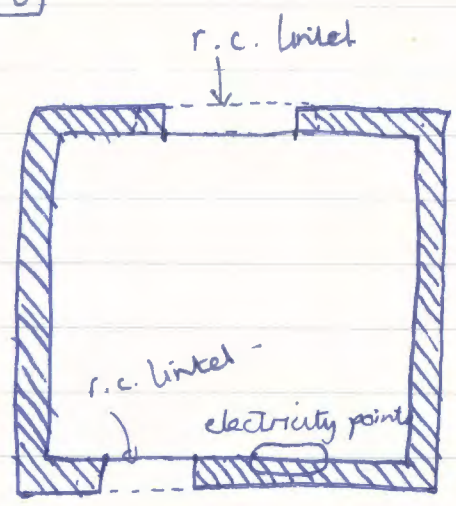 r.c. lintel
r.c. lintel
electricity points